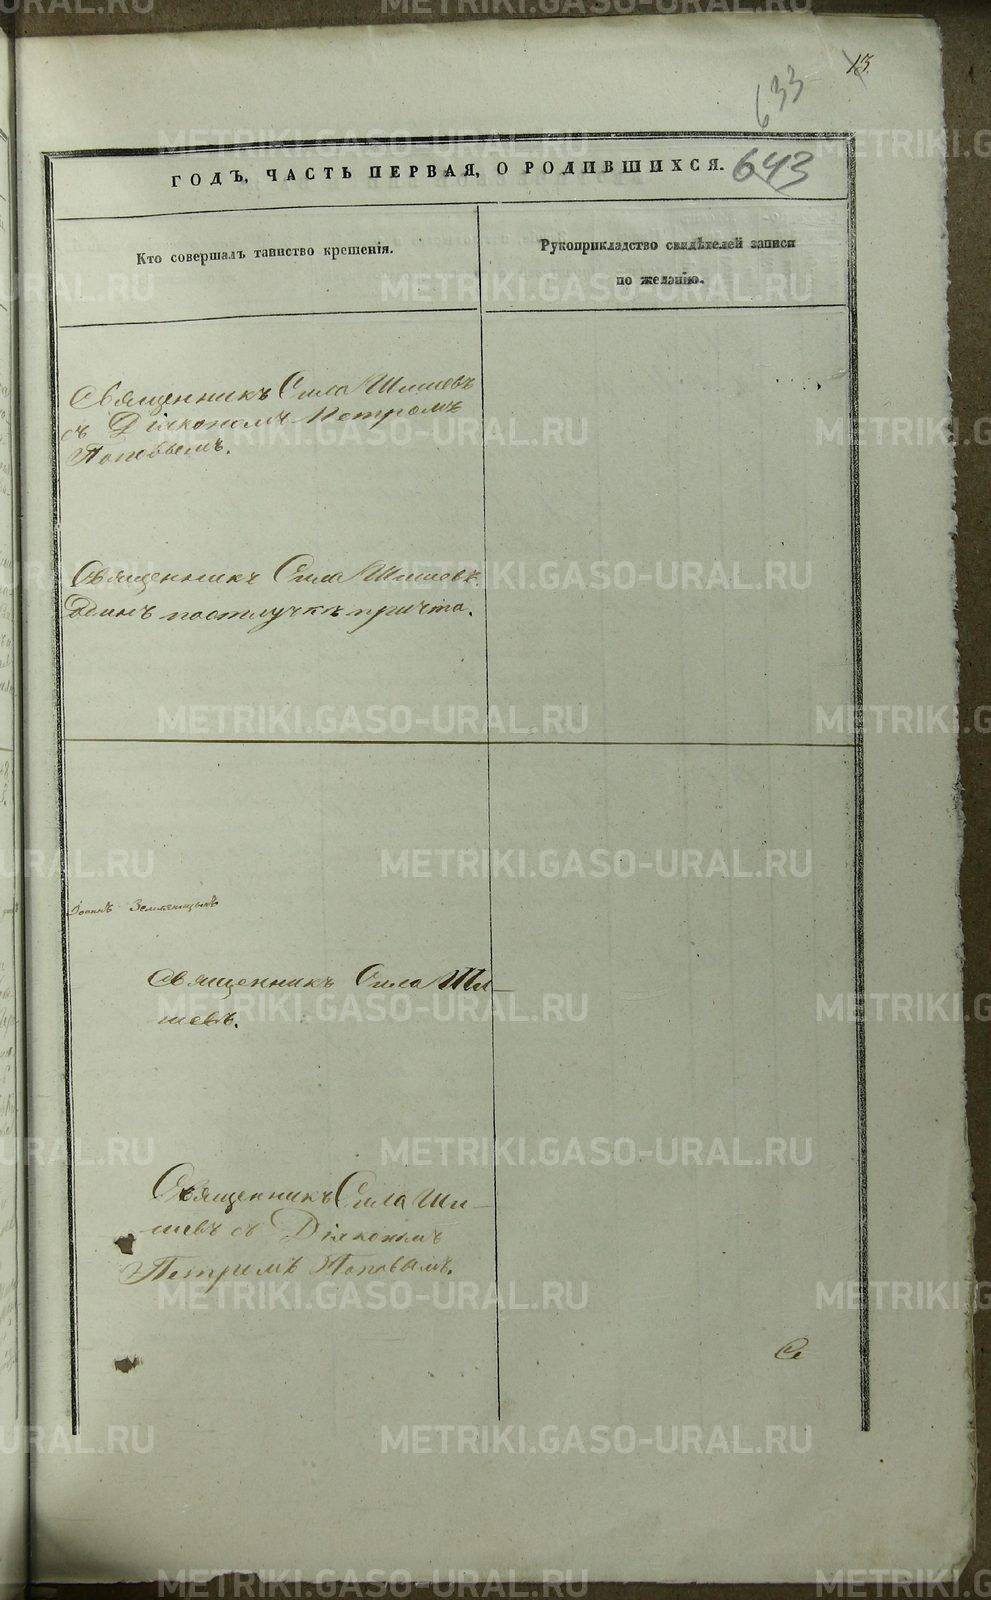 13.
633
ГОДЪ, ЧАСТЬ ПЕРВАЯ, О РОДИВШИХСЯ. 643
Кто совершалъ таинство крещенія.
Рукоприкладство свидѣтелей записи
по желанію.
Священникъ Сила Шмшевъ
съ Діякономъ Петромъ
Поповымъ.
Священникъ Сила Шмшевъ
одинъ поотлучкѣ причта.
Іоаннъ Земляницынъ
Священникъ Сила Шм-
шевъ.
Священникъ Сила Шм-
шевъ съ Діякономъ
Петромъ Поповымъ.
Се
METRIKI.GASO-URAL.RU